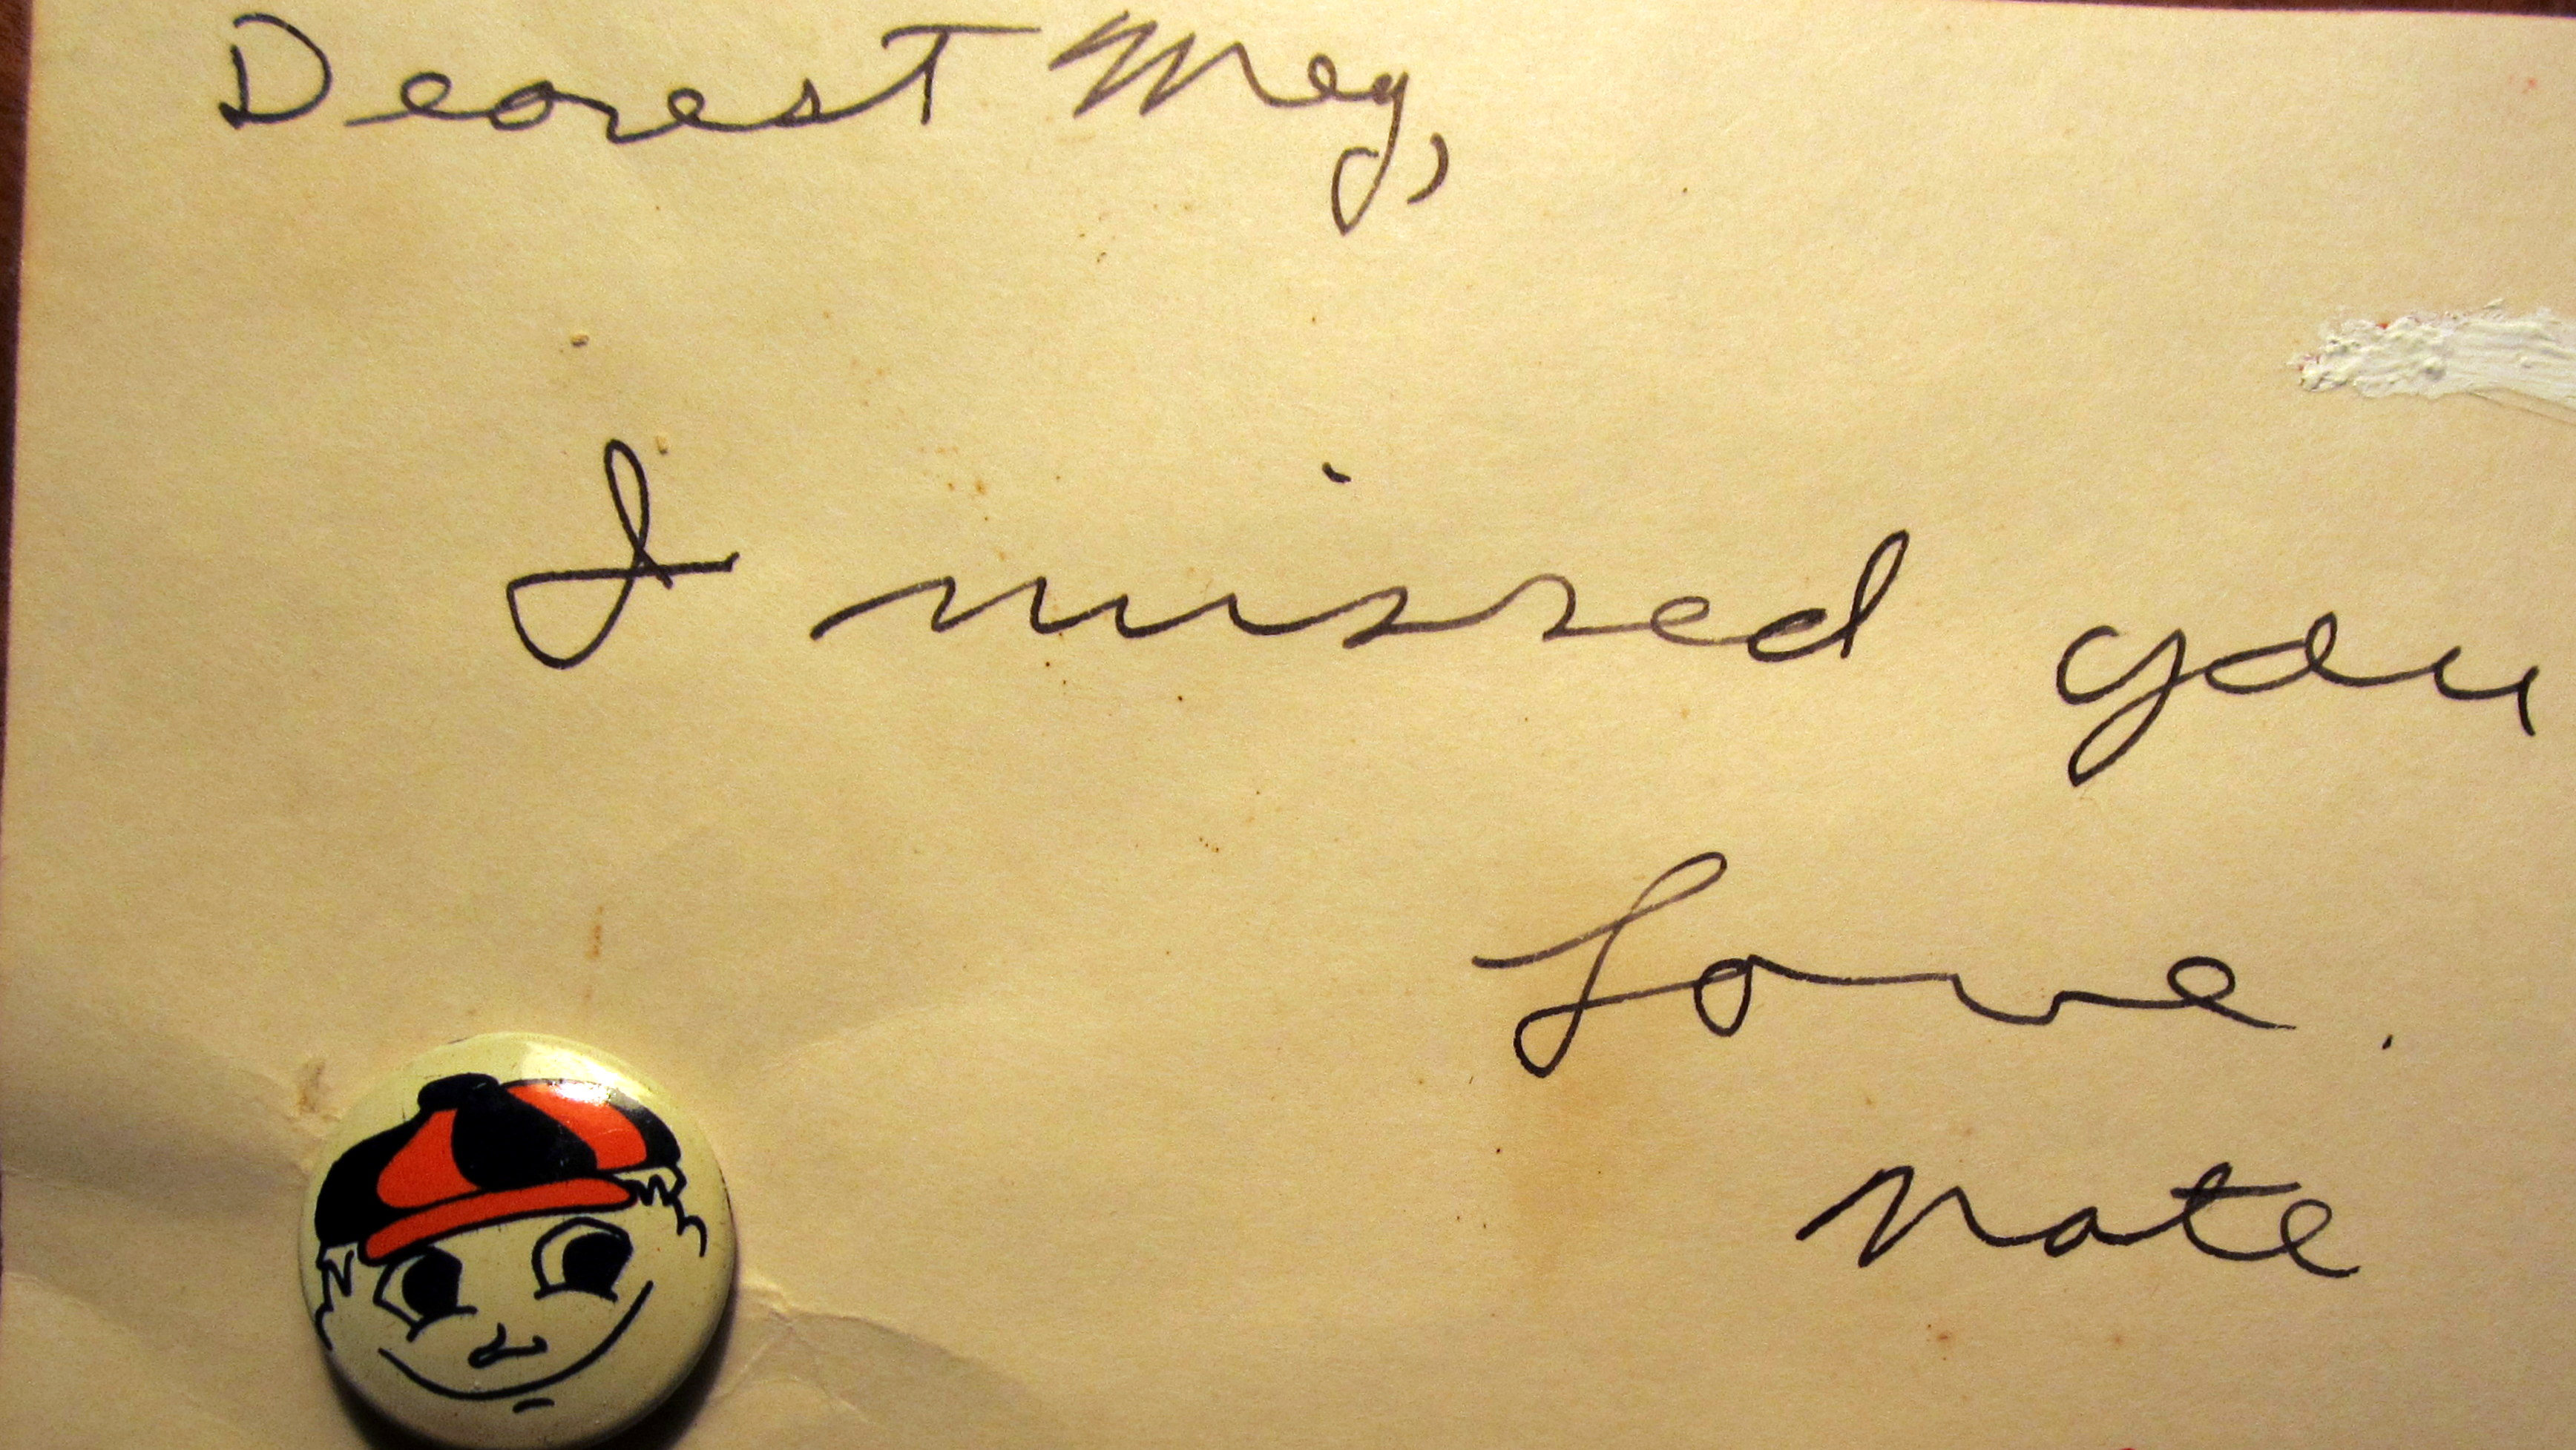 Dearest Meg,
I missed you
Love.
Nate